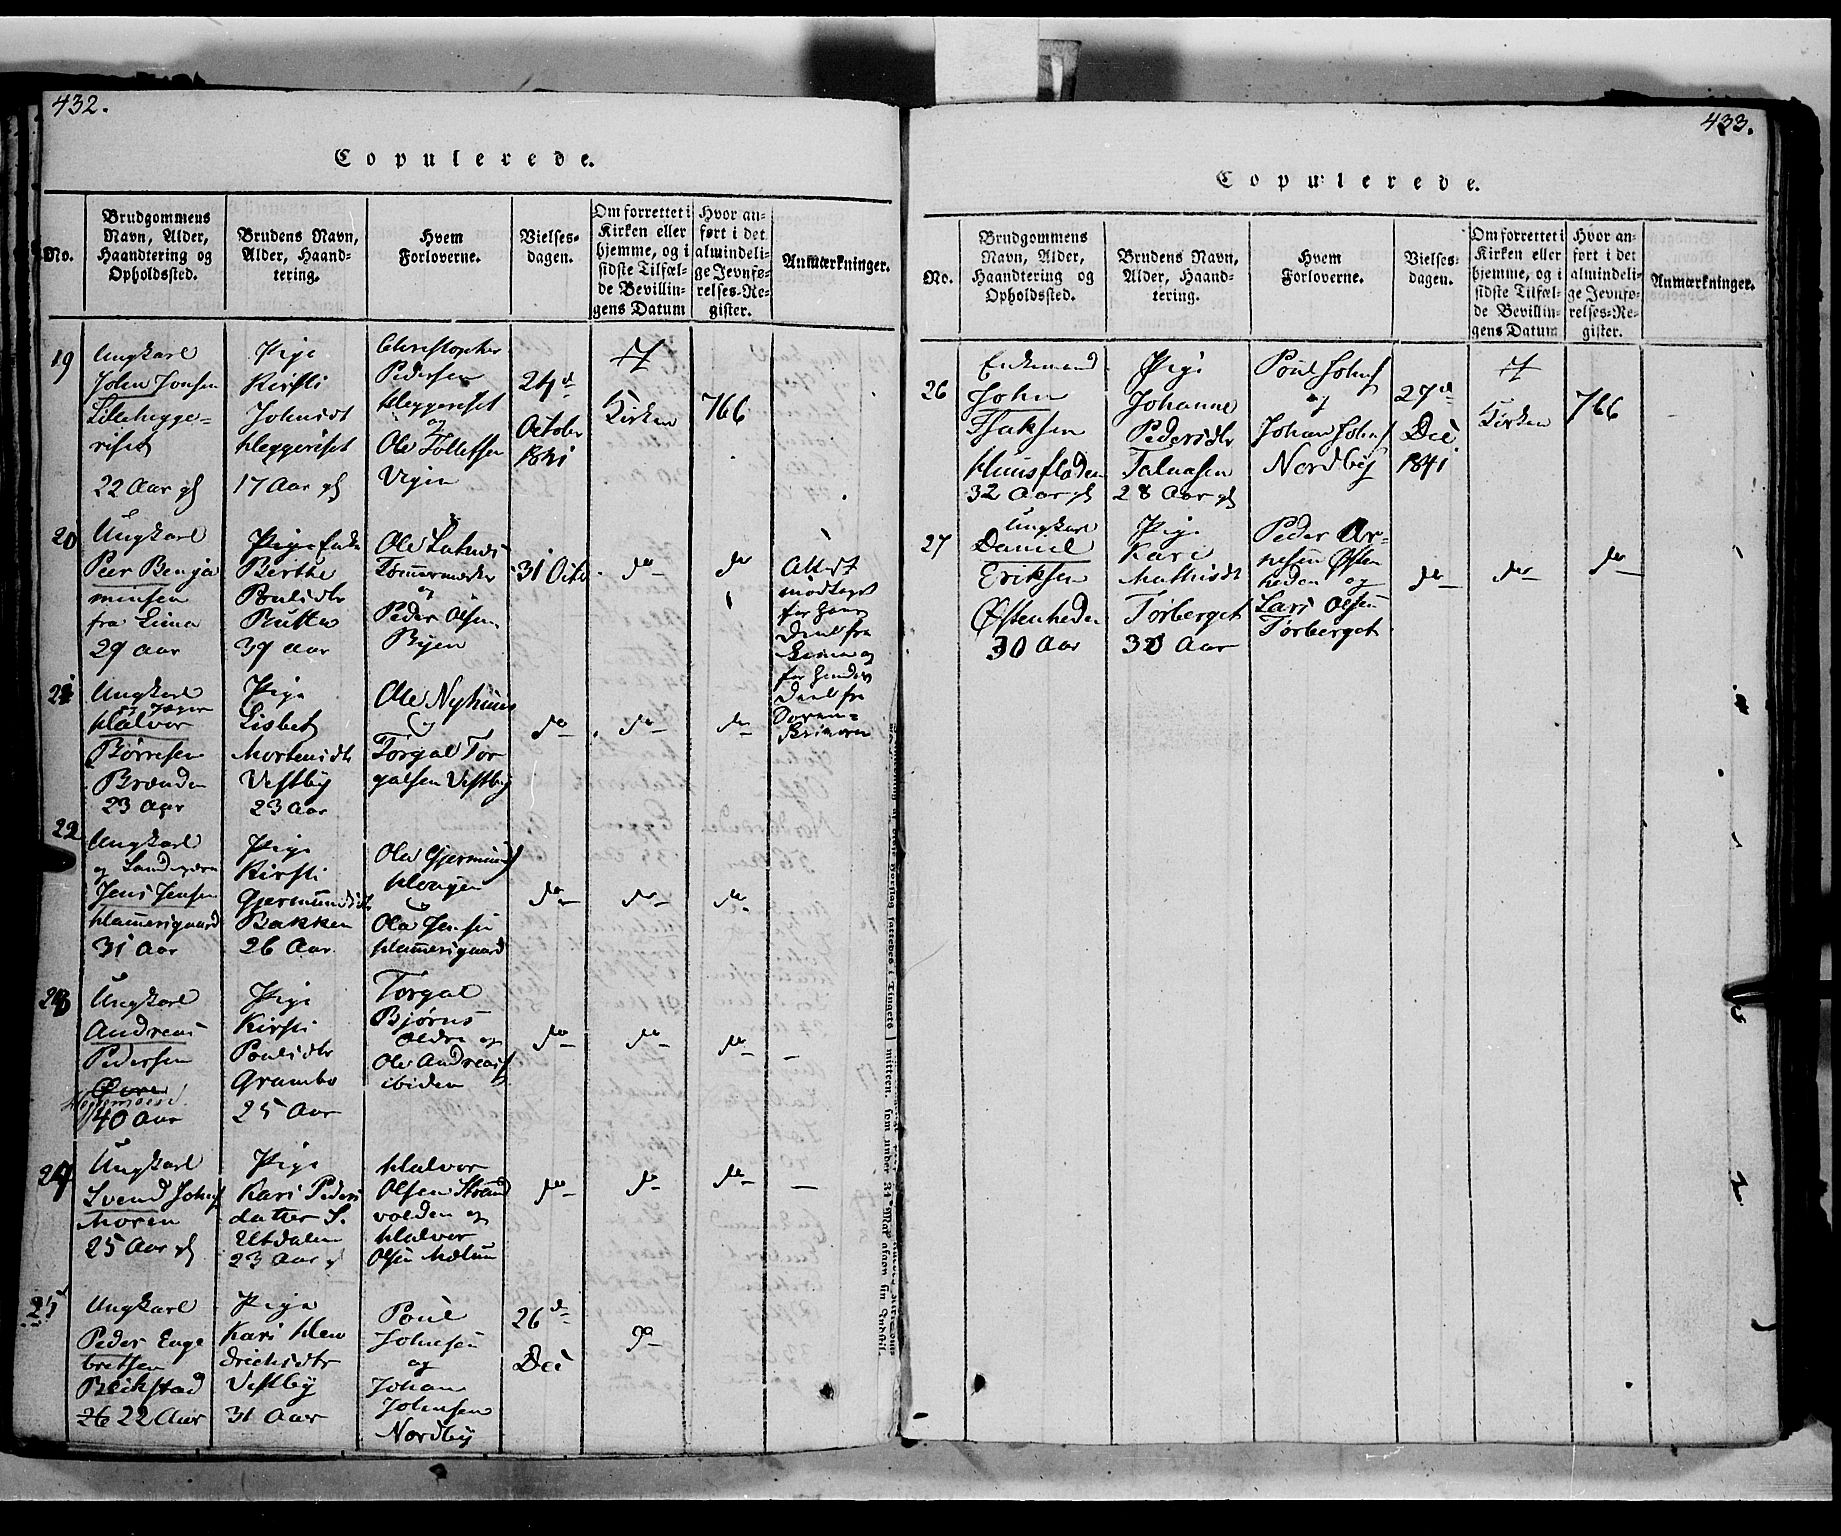 432.
Copulerede.
No.
Brudgommens
Navn, Alder,
Haandtering og
Opholdssted.
Brudens Navn,
Alder, Haand-
tering.
Hvem
Forloverne.
Vielses-
dagen.
Om forrettet i
Kirken eller
hjemme, og i
sidste Tilfæl-
de Bevillin-
gens Datum
Hvor an-
ført i det
almindeli-
ge Jevnfø-
relses-Re-
gister.
Anmærkninger.
19
Ungkarl
John Jonsen
Lilleheggeriset
22 Aar gl
Pige
Kirsti
Johnsdt
Heggeriset
17 Aar gl
Christopher
Pedersen
Heggeriset
og
Ole Tollefsen
24d
October
1841
I
Kirken
766
20
Ungkarl
Peer Benja
minsen
fra Lima
29 Aar
Pige Enke
Berthe
Poulsdtr
39 Aar
Ole
og
Peder Olsen
Byen
31 Octo
do
do
Attest
modtaget
for hans
Deel fra
Lima og
for hendes
Deel fra
21
Ungkarl
og Jæger
Halvor
Børresen
Brænden
23 Aar
Pige
Lisbet
Mortensdtr
Vestby
23 Aar
Ole Nyhuus
og
Torgal Tor
galsen Vestby
do
do
do
22
Ungkarl
Jens Jensen
Hammersgaard
31 Aar
Pige
Kirsti
Gjermundsdtr
Bakken
26 Aar
Ole Gjermunds
Haugen
og
Ole Jensen
Hammersgaard
do
do
do
23
Ungkarl
Andreas
Pedersen
40 Aar
Pige
Kirsti
Poulsdtr
Grambo
25 Aar
Torgal
Bjørns
og
Ole Andreas
ibiden
do
do
do
24
Ungkarl
Svend Johns
Moren
25 Aar gl
Pige
Kari Peders
datter S.
Utdalen
23 Aar gl
Halvor
Olsen Strand
volden og
Halvor
Olsen
do
do
do
25
Ungkarl
Peder Enge
bretsen
Beikstad
22 Aar
Pige
Kari Hen
drichsdtr
Vestby
31 Aar
Poul
Johnsen
og
Johan
Johnsen
Nordby
26d
Dec
do
433.
Copulerede.
No.
Brudgommens
Navn, Alder,
Haandtering og
Opholdssted.
Brudens Navn,
Alder, Haand-
tering.
Hvem
Forloverne.
Vielses-
dagen.
Om forrettet i
Kirken eller
hjemme, og i
sidste Tilfæl-
de Bevillin-
gens Datum
Hvor an-
ført i det
almindeli-
ge Jevnfø-
relses-Re-
gister.
Anmærkninger.
26
Enkemand
John
Isaksen
Huusfloden
32 Aar gl
Pige
Johanne
Pedersdtr
Talaasen
28 Aar gl
Poul Johns
og
Johan Johns
Nordby
27d
Dec
1841
I
Kirken
766
27
Ungkarl
Daniel
Eriksen
Østenheden
30 Aar
Pige
Kari
Mathisdt
Tørberget
30 Aar
Peder Ar-
nesen Østen
heden og
Lars Olsen
Tørberget
do
do
do